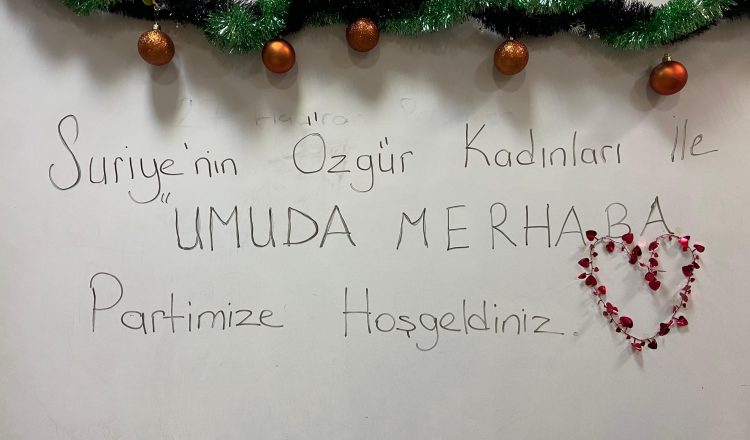 Suriye'nin Özgür Kadınları İle
"UMUDA MERHABA
Partimize Hoşgeldiniz.